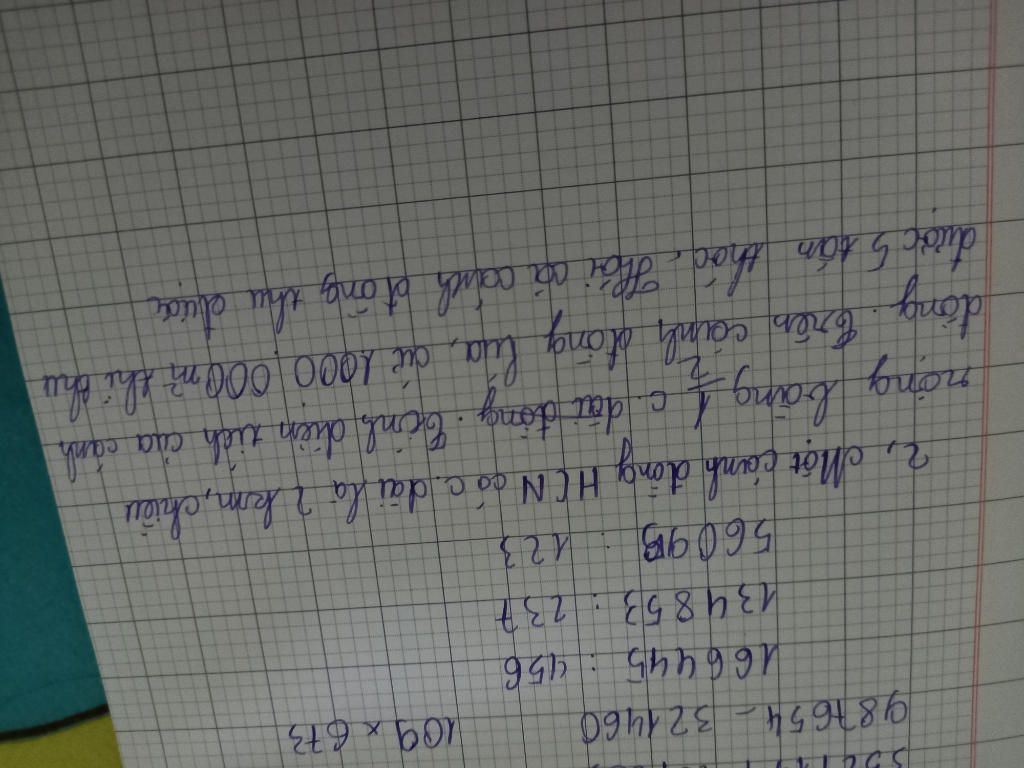 987654 - 321460 109 x 673
166445 : 456
134853 : 237
: 123
2, Một cánh đồng HCN có c. dài là 2 km, chiều
rộng bằng 1/2 c. dài đồng. Tính diện tích của cánh
đồng. Trên cánh đồng lúa, cứ 1000 000 m² thì thu
được 5 tấn thóc. Hỏi cả cánh đồng thu được